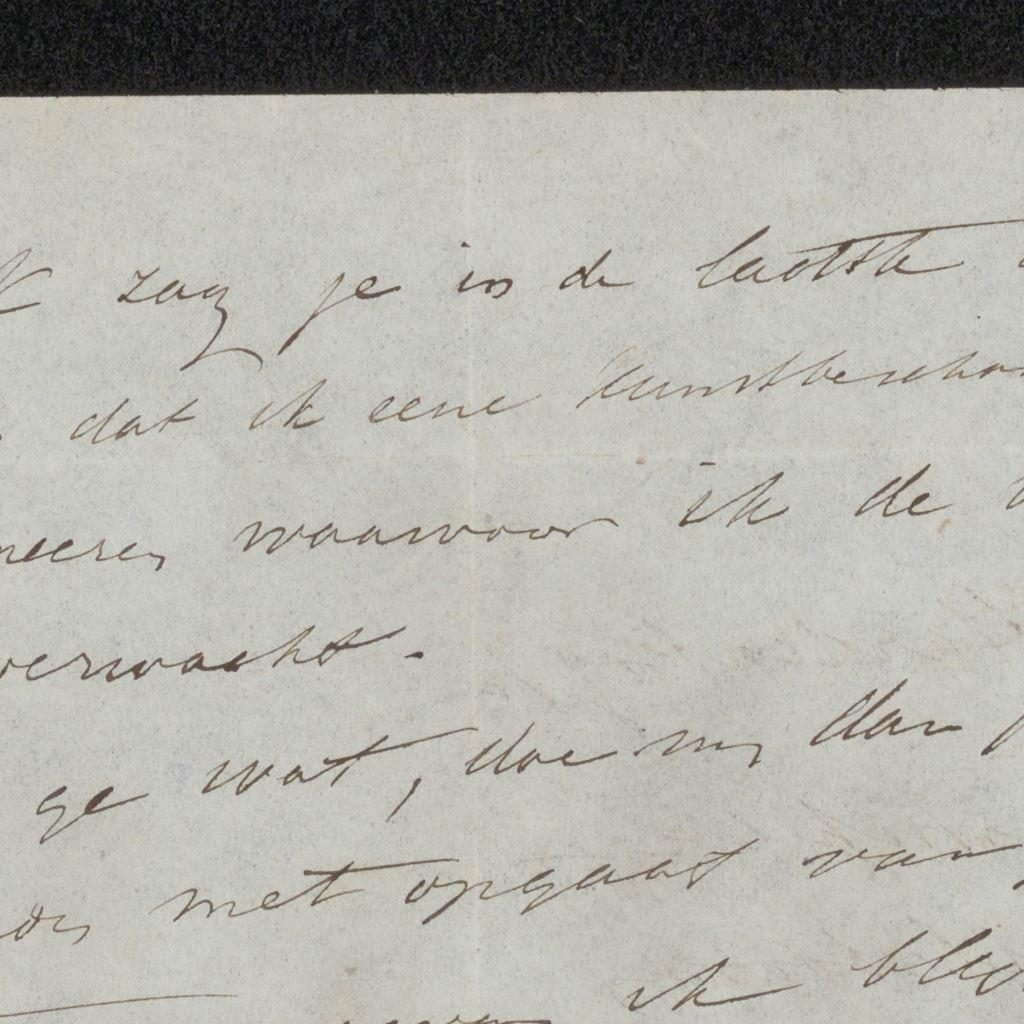 zag je in de laatste
dat ik eene kunstbeschou
neeren waarvoor ik de
verwacht.
ge wat, doe mij dan
met opgaaf van
ik